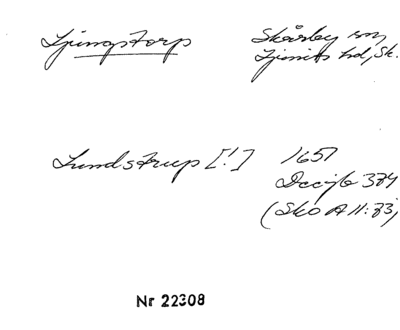 Ljungstorp Skårby sn,
Ljunits hd, Sk.
Lundstrup [!] 1651
Decijb 374
(Sko A II:73)
Nr 22308